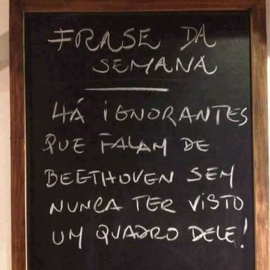 FRASE DA
SEMANA
HÁ IGNORANTES
QUE FALAM DE
BEETHOVEN SEM
NUNCA TER VISTO
UM QUADRO DELE!